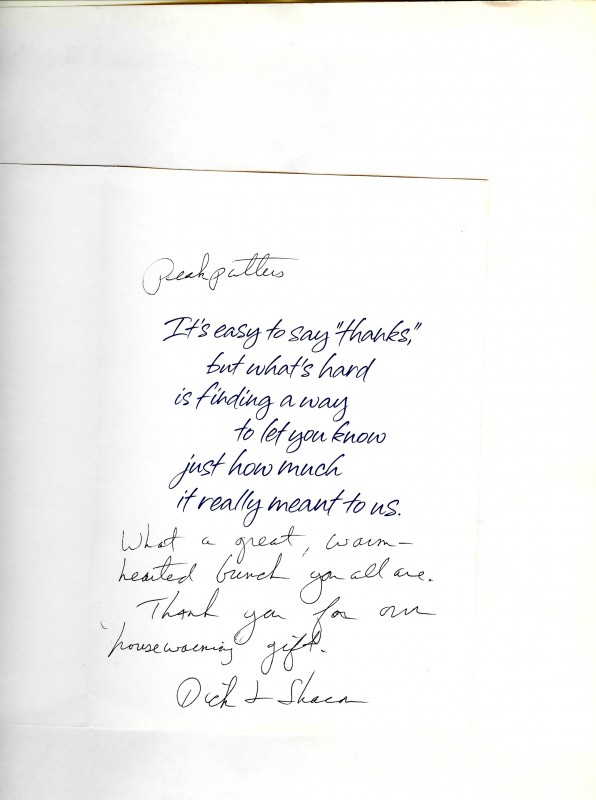 Peakputters
It's easy to say "thanks,"
but what's hard
is finding a way
to let you know
just how much
it really meant to us.
What a great, warm-
hearted bunch you all are.
Thank you for our
'housewarming' gift.
Dick & Sharon